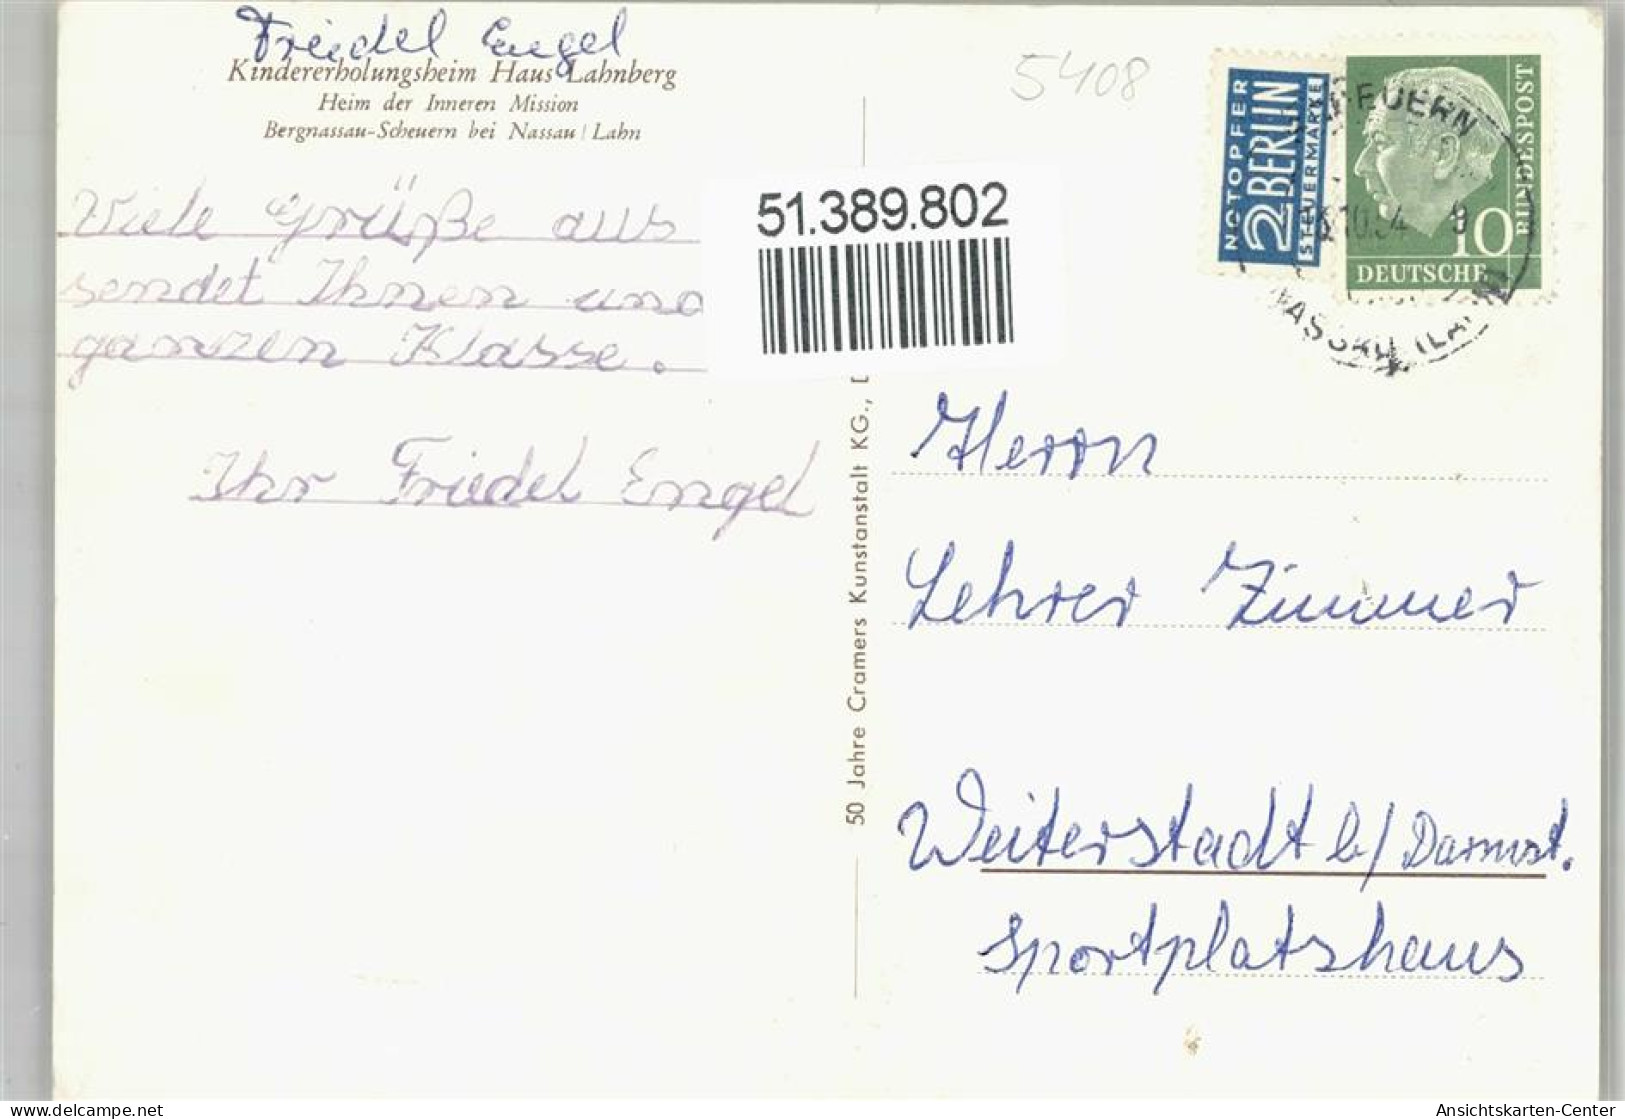 Friedel Engel
Kindererholungsheim Haus Lahnberg
Heim der Inneren Mission
Bergnassau-Scheuern bei Nassau / Lahn
Viele Grüße aus
sendet Ihnen und
ganzen Klasse.
Ihr Friedel Engel
51.389.802
50 Jahre Cramers Kunstanstalt KG.,
5408
NOTOPFER
2 BERLIN
STEUERMARKE
BUNDESPOST
10
DEUTSCHE
10.54 9
NASSAU (LAHN)
Herrn
Lehrer Zimmer
Weiterstadt b/ Darmst.
Sportplatshaus
Ansichtskarten-Center
www.delcampe.net